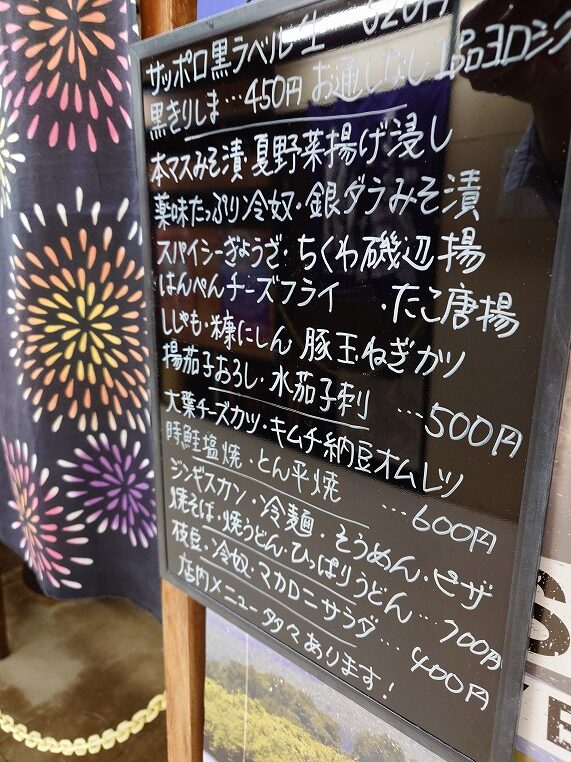 サッポロ黒ラベル生 620円
黒きりしま…450円 お通しなし 1品ヨロシク
本マスみそ漬・夏野菜揚げ浸し
薬味たっぷり冷奴・銀ダラみそ漬
スパイシーぎょうざ・ちくわ磯辺揚
はんぺんチーズフライ ・たこ唐揚
ししゃも・糠にしん 豚玉ねぎカツ
揚茄子おろし・水茄子刺 …500円
大葉チーズカツ・キムチ納豆オムレツ
時鮭塩焼・とん平焼 …600円
ジンギスカン・冷麺・そうめん・ピザ
焼そば・焼うどん・ひっぱりうどん…700円
枝豆・冷奴・マカロニサラダ…400円
店内メニュー多々あります！